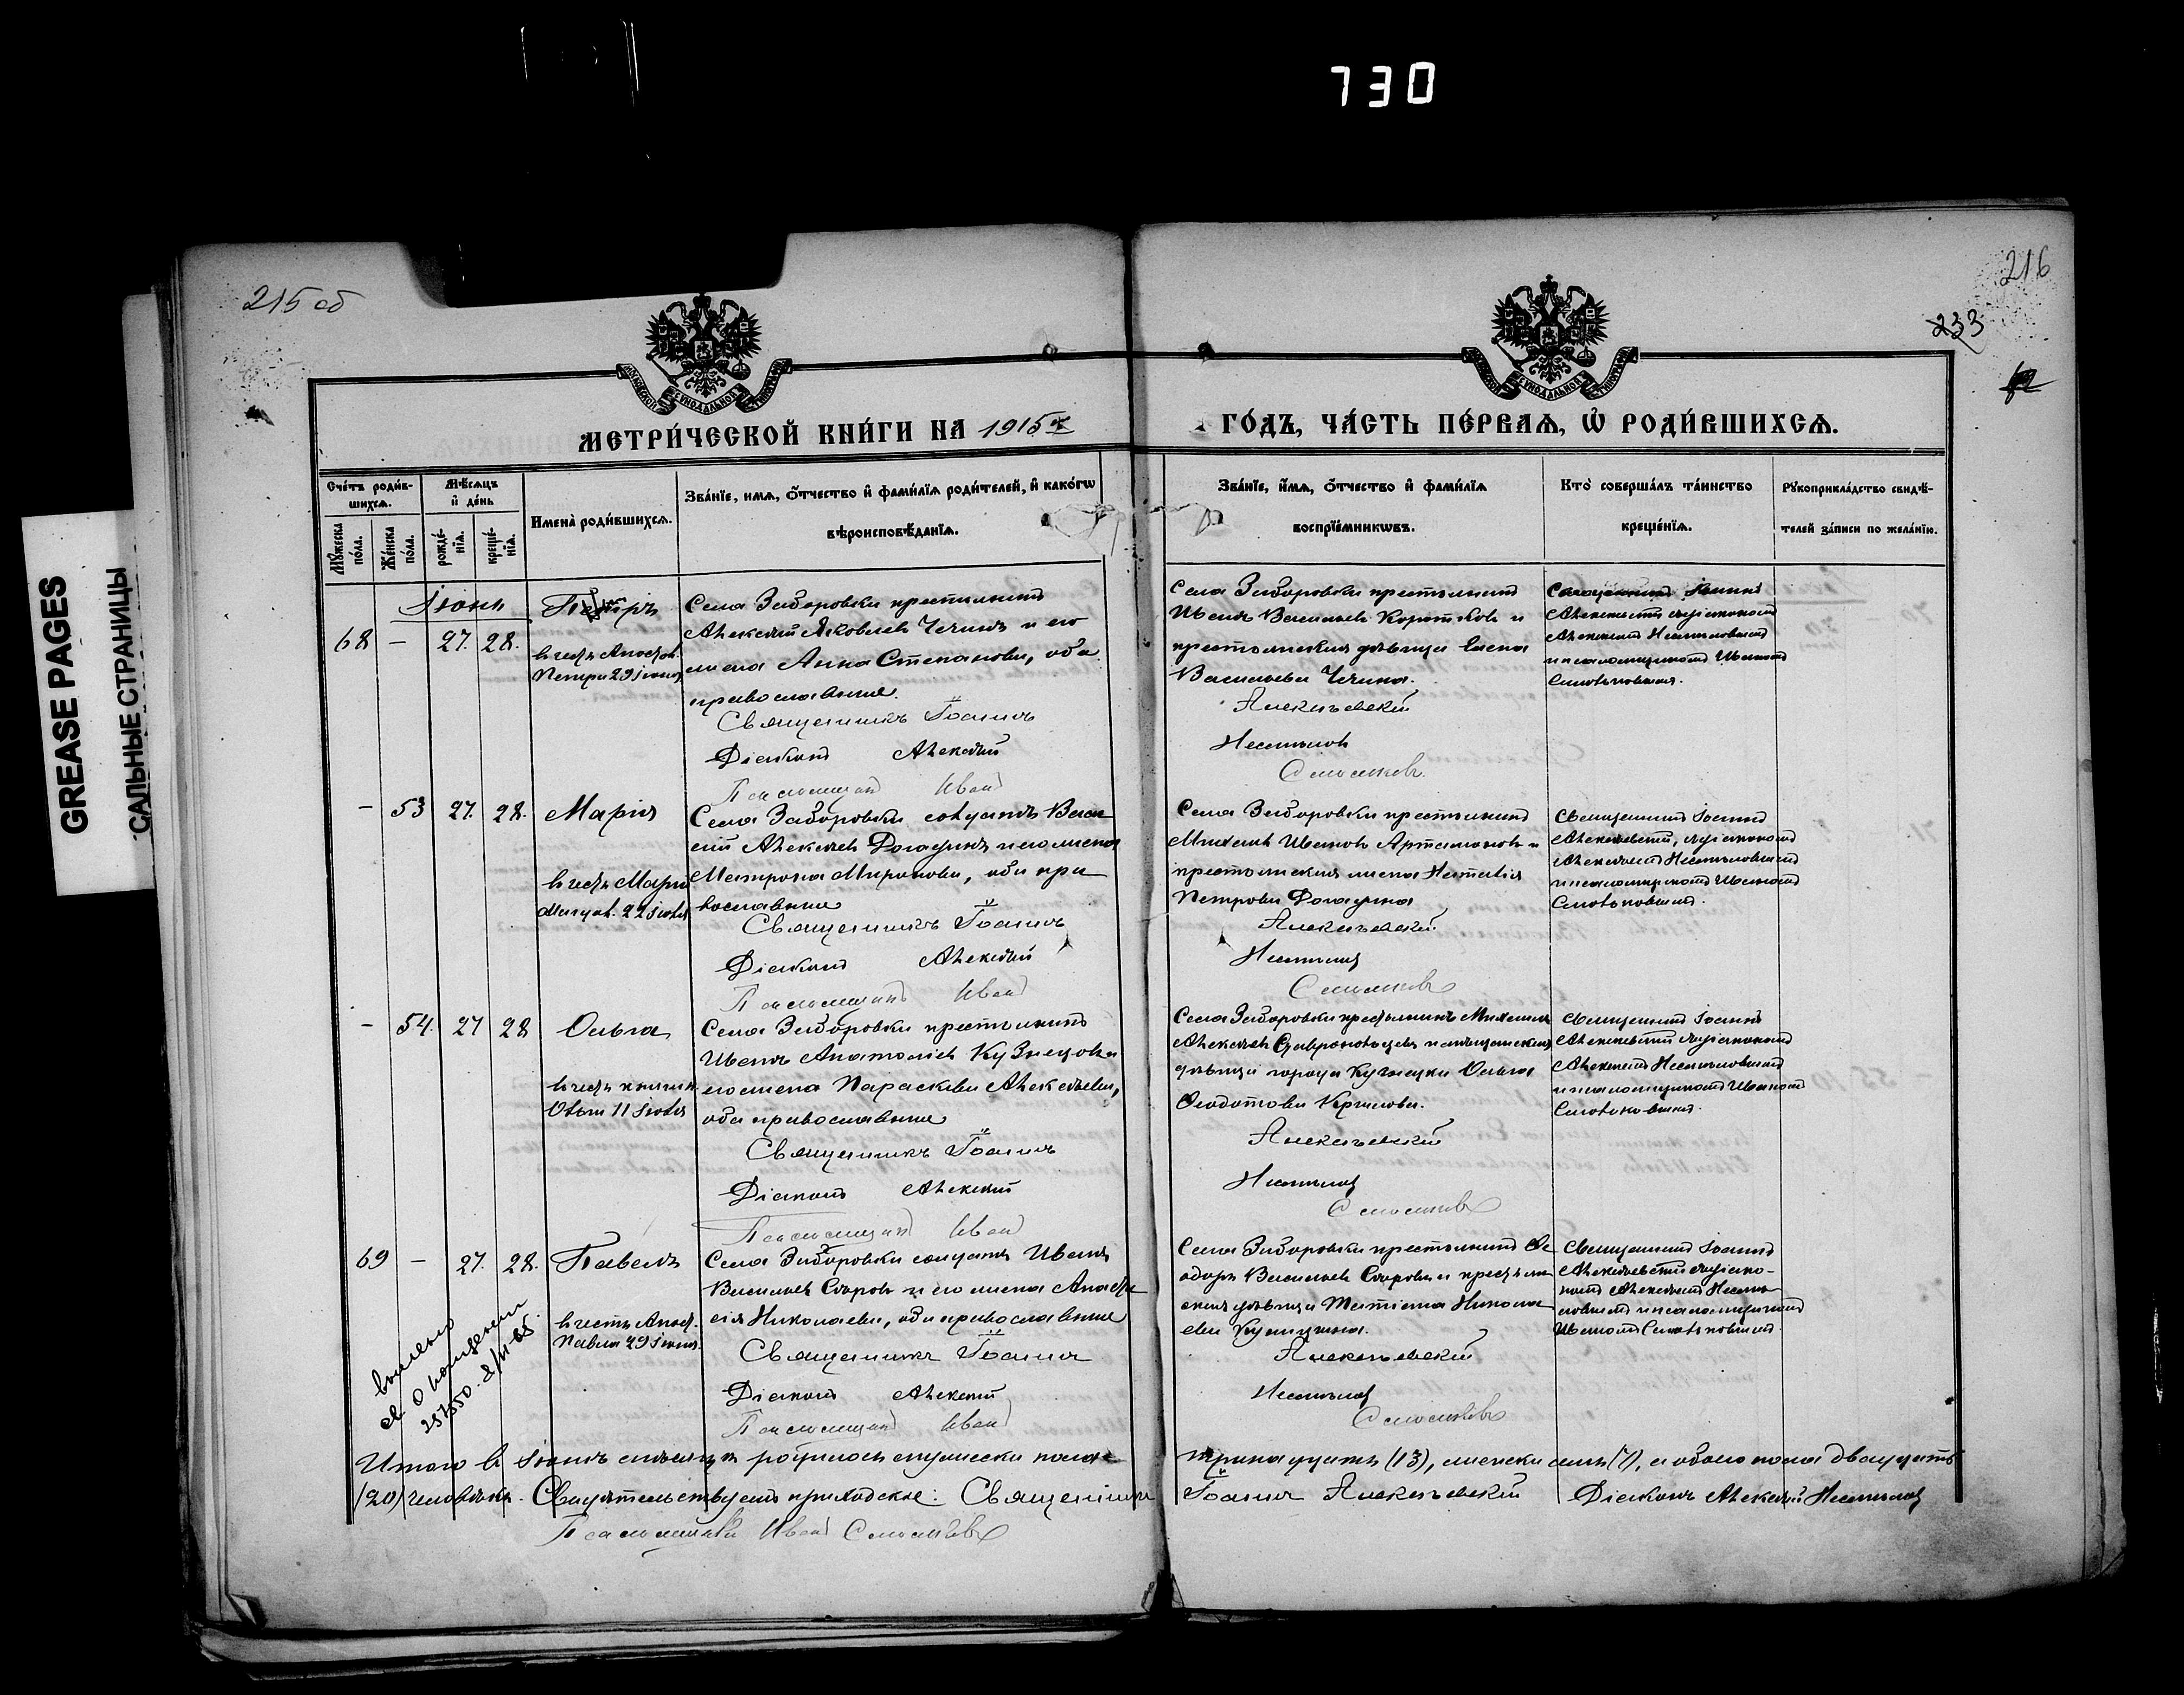 730
GREASE PAGES
САЛЬНЫЕ СТРАНИЦЫ
215 об
216
233
МЕТРИ́ЧЕСКОЙ КНИ́ГИ НА 1915 г
ГО́ДЪ, ЧА́СТЬ ПЕ́РВАѦ, Ѡ҆ РОДИ́ВШИХСѦ.
Сче́тъ роди́в-
шихсѧ.
Мꙋ́жеска по́ла.
Же́нска по́ла.
Мѣ́сѧцъ
и҆ де́нь
рожде́-
нїѧ.
креще́-
нїѧ.
Имена̀ роди́вшихсѧ.
Зва́нїе, имѧ, ѻ҆́тчество и҆ фами́лїѧ роди́телей, и҆ како́гѡ
вѣроисповѣ́данїѧ.
Зва́нїе, и҆́мѧ, ѻ҆́тчество и҆ фами́лїѧ
воспрїе́мникѡвъ.
Кто̀ соверша́лъ та́инство
креще́нїѧ.
Рꙋкоприкла́дство свидѣ́-
телей за́писи по жела́нїю.
Іюнь
68 – 27. 28.
Петръ
в честь Апостол.
Петра 29 іюня
Села Заборовки крестьянинъ
Алексѣй Яковлевъ Чечинъ и его
жена Анна Степанова, оба
православные.
Священникъ Іоаннъ
Діаконъ Алексѣй
Псаломщикъ Иванъ
Села Заборовки крестьянинъ
Иванъ Васильевъ Коротковъ и
крестьянская дѣвица Елена
Васильева Чечина.
Алексѣевскій
Несмѣловъ
Священникъ Іоаннъ
Алексѣевскій съ діакономъ
Алексѣемъ Несмѣловымъ
и псаломщикомъ Иваномъ
– 53 27. 28.
Марія
в честь Маріи
Магдал. 22 іюля
Села Заборовки солдатъ Васи
лій Алексѣевъ Догадинъ и его жена
Матрона Миронова, оба пра
вославные
Священникъ Іоаннъ
Діаконъ Алексѣй
Псаломщикъ Иванъ
Села Заборовки крестьянинъ
Михаилъ Ивановъ Артамоновъ и
крестьянская жена Наталія
Петрова Догадина
Алексѣевскій.
Несмѣловъ
Священникъ Іоаннъ
Алексѣевскій, съ діакономъ
Алексѣемъ Несмѣловымъ
и псаломщикомъ Иваномъ
– 54. 27 28
Ольга
в честь княгин.
Ольги 11 іюля
Села Заборовки крестьянинъ
Иванъ Анатоліевъ Кузнецовъ и
его жена Параскева Алексѣева,
оба православные
Священникъ Іоаннъ
Діаконъ Алексѣй
Псаломщикъ Иванъ
Села Заборовки крестьянинъ Михаилъ
дѣвица города Кузнецка Ольга
Ѳеодотова Кирилова.
Алексѣевскій
Несмѣловъ
Священникъ Іоаннъ
Алексѣевскій съ діакономъ
Алексѣемъ Несмѣловымъ
и псаломщикомъ Иваномъ
69 – 27. 28.
Павелъ
в честь Апост.
Павла 29 іюня.
Села Заборовки солдатъ Иванъ
Васильевъ и его жена Анаста
сія Николаева, оба православные
Священникъ Іоаннъ
Діаконъ Алексѣй
Псаломщикъ Иванъ
Села Заборовки крестьянинъ Ѳе
одоръ Васильевъ и крестьян
ская дѣвица Татіана Никола
ева
Алексѣевскій
Несмѣловъ
Священникъ Іоаннъ
Алексѣевскій съ діако-
номъ Алексѣемъ Несмѣ
ловымъ и псаломщикомъ
Иваномъ
Итого в іюнѣ мѣсяцѣ родилось мужеска пола тринадцать (13), женска семь (7), а обоего пола двадцать
(20) человѣкъ. Свидѣтельствуемъ приходскіе: Священникъ Іоаннъ Алексѣевскій Діаконъ Алексѣй Несмѣловъ
Иванъ